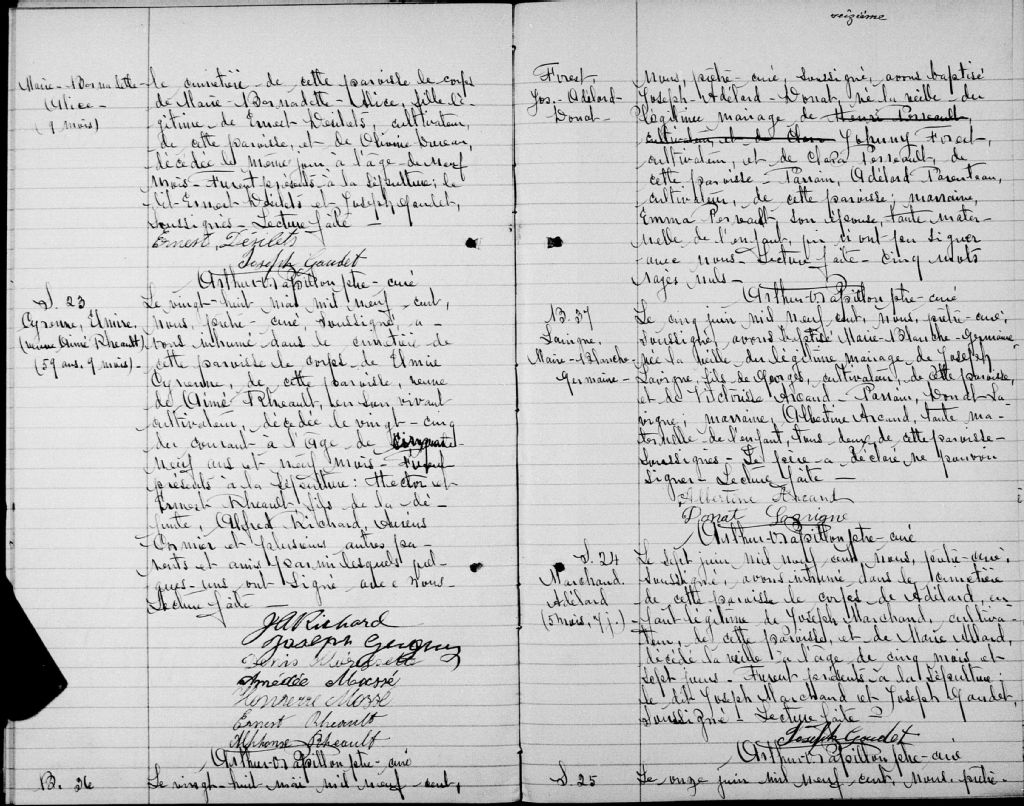 Marie-Bernadette-
Alice-
(9 mois)
le cimetière de cette paroisse le corps
de Marie-Bernadette-Alice, fille lé-
gitime de Ernest Désilets, cultivateur,
de cette paroisse, et de Olivine
décédée le même jour à l'âge de neuf
mois- Furent présents à la sépulture; le
dit Ernest Désilets et Joseph Gaudet,
soussignés- Lecture faite-
Ernest Désilets
Joseph Gaudet
Arthur O. Papillon ptre-curé
S. 23
Cyrenne, Elmire,
(veuve Aimé Rheault)
(59 ans. 9 mois)-
Le vingt-huit mai mil neuf cent,
nous, prêtre-curé, soussigné, a-
vons inhumé dans le cimetière de
cette paroisse le corps de Elmire
Cyrenne, de cette paroisse, veuve
de Aimé Rheault, en son vivant
cultivateur, décédée le vingt-cinq
du courant à l'âge de cinquante
neuf ans et neuf mois- Furent
présents à la sépulture: Hector et
Ernest Rheault, fils de la dé-
funte, Alfred Richard,
Cormier et plusieurs autres pa-
rents et amis parmi lesquels quel-
ques-uns ont signé avec nous-
Lecture faite-
J A Richard
Joseph
Amédée Massé
Honoré Massé
Ernest Rheault
Alphonse Rheault
Arthur O. Papillon ptre-curé
B. 36
Le vingt-huit mai mil neuf cent,
seizième
Forest,
Jos.-Adélard-
Donat-
Nous, prêtre-curé, soussigné, avons baptisé
Joseph-Adélard-Donat, né la veille du
légitime mariage de Henri Perreault,
cultivateur et de Clara Johnny Forest,
cultivateur, et de Clara Perreault, de
cette paroisse- Parrain, Adélard Parenteau,
cultivateur, de cette paroisse; marraine,
Emma Perreault son épouse, tante mater-
nelle de l'enfant, qui n'ont pu signer
avec nous- Lecture faite- cinq mots
rayés nuls-
Arthur O. Papillon ptre-curé
B. 37
Lavigne,
Marie-Blanche-
Germaine-
Le cinq juin mil neuf cent, nous, prêtre-curé,
soussigné, avons baptisé Marie-Blanche-Germaine
née la veille du légitime mariage de Joseph
Lavigne, fils de Georges, cultivateur, de cette paroisse,
et de Victorise Arcand- Parrain, Donat La-
vigne; marraine, Albertine Arcand, tante ma-
ternelle de l'enfant, tous deux de cette paroisse-
soussignés- Le père a déclaré ne pouvoir
signer- Lecture faite-
Albertine Arcand
Donat Lavigne
Arthur O. Papillon ptre-curé
S. 24
Marchand,
Adélard
(5 mois, 7 j.)-
Le sept juin mil neuf cent, nous, prêtre-curé,
soussigné, avons inhumé dans le cimetière
de cette paroisse le corps de Adélard, en-
fant légitime de Joseph Marchand, cultiva-
teur, de cette paroisse, et de Marie Allard,
décédé la veille à l'âge de cinq mois et
sept jours- Furent présents à la sépulture:
le dit Joseph Marchand et Joseph Gaudet,
soussigné- Lecture faite-
Joseph Gaudet
Arthur O. Papillon ptre-curé
S. 25
Le onze juin mil neuf cent, nous, prêtre-